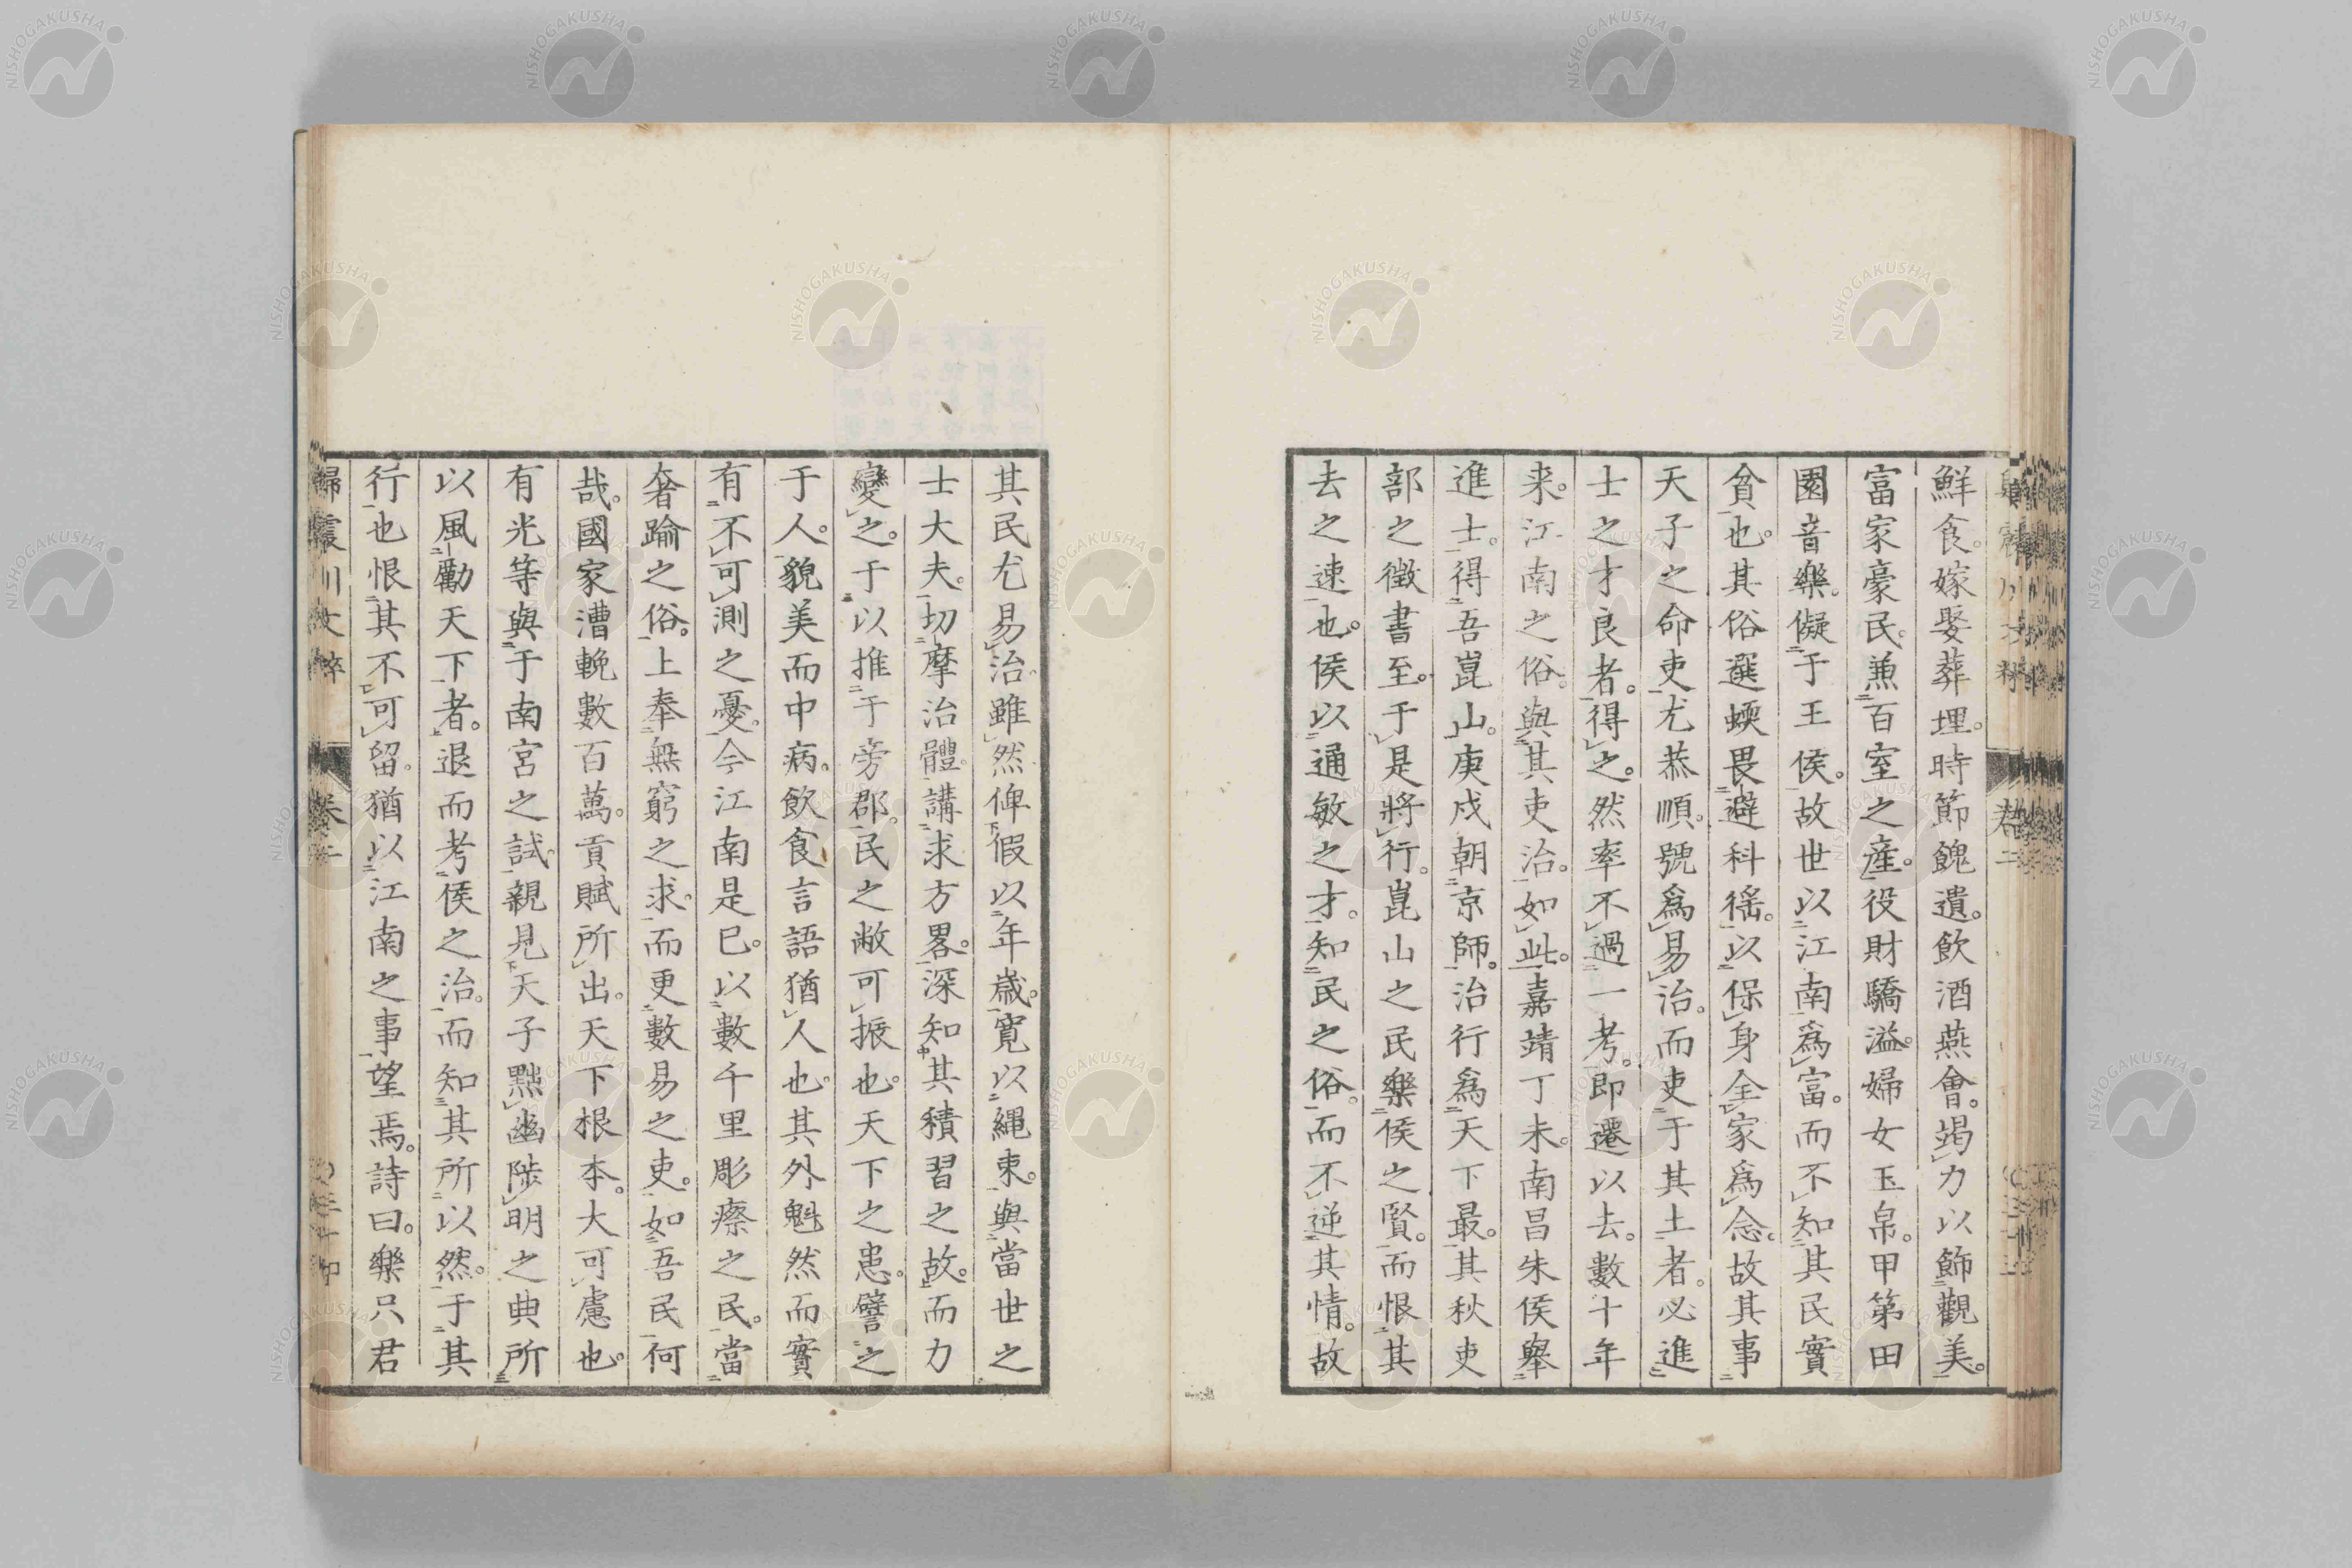 鮮食。嫁娶葬埋。時節餽遺。飲酒燕會。竭力以飾觀美。
富家豪民。兼百室之產。役財驕溢。婦女玉帛。甲第田
園音樂。儗于王侯。故世以江南爲富。而不知其民實
貧也。其俗選蝡畏避科徭。以保身全家爲念。故其事
天子之命吏。尤恭順。號爲易治。而吏于其土者。必進
士之才良者。得之。然率不過一考。即遷以去。數十年
来。江南之俗。與其吏治。如此。嘉靖丁未。南昌朱侯擧
進士。得吾崑山。庚戌朝京師。治行爲天下最。其秋吏
部之徵書至。于是將行。崑山之民樂侯之賢。而恨其
去之速也。侯以通敏之才。知民之俗。而不逆其情。故
其民尤易治。雖然俾假以年歲。寛以繩束。與當世之
士大夫。切摩治體。講求方畧。深知其積習之故。而力
變之。于以推于旁郡。民之敝可振也。天下之患。譬之
于人。貌美而中病。飲食言語猶人也。其外魁然而實
有不可測之憂。今江南是已。以數千里彫瘵之民。當
奢踰之俗。上奉無窮之求。而更數易之吏。如吾民何
哉。國家漕輓數百萬。貢賦所出。天下根本。大可慮也。
有光等與于南宮之試。親見天子黜幽陟明之典所
以風勵天下者。退而考侯之治。而知其所以然。于其
行也恨其不可留。猶以江南之事望焉。詩曰。樂只君
歸震川文粹 卷二